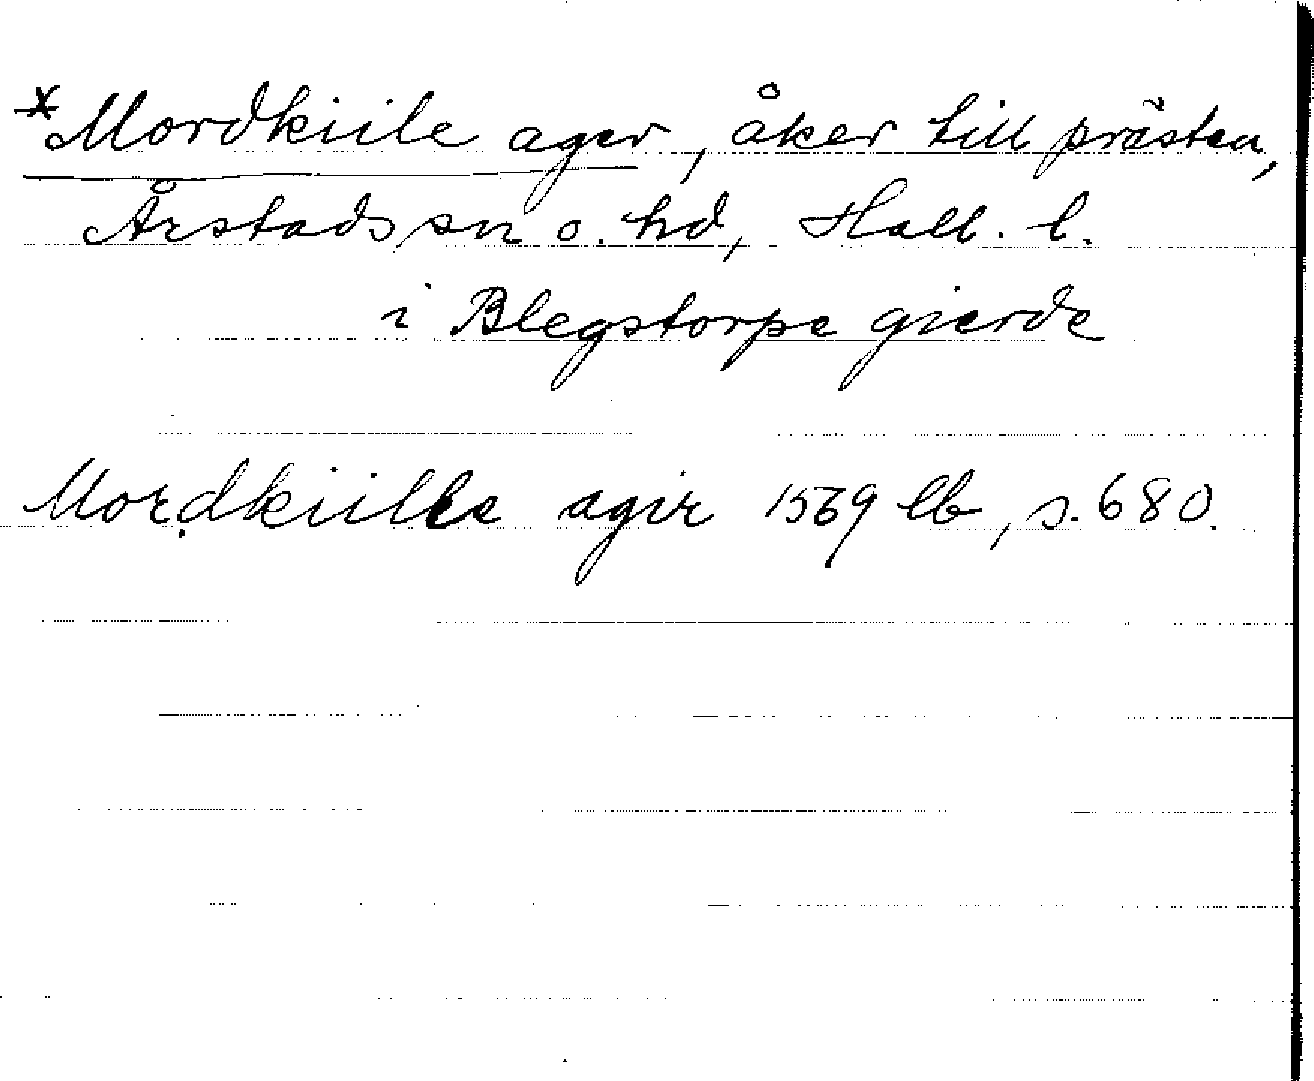 *Mordkiile ager, åker till prästen,
Årstads sn o. hd, Hall. l.
i Blegstorps gierde
Mordkiille agir 1569 lb, s. 680.